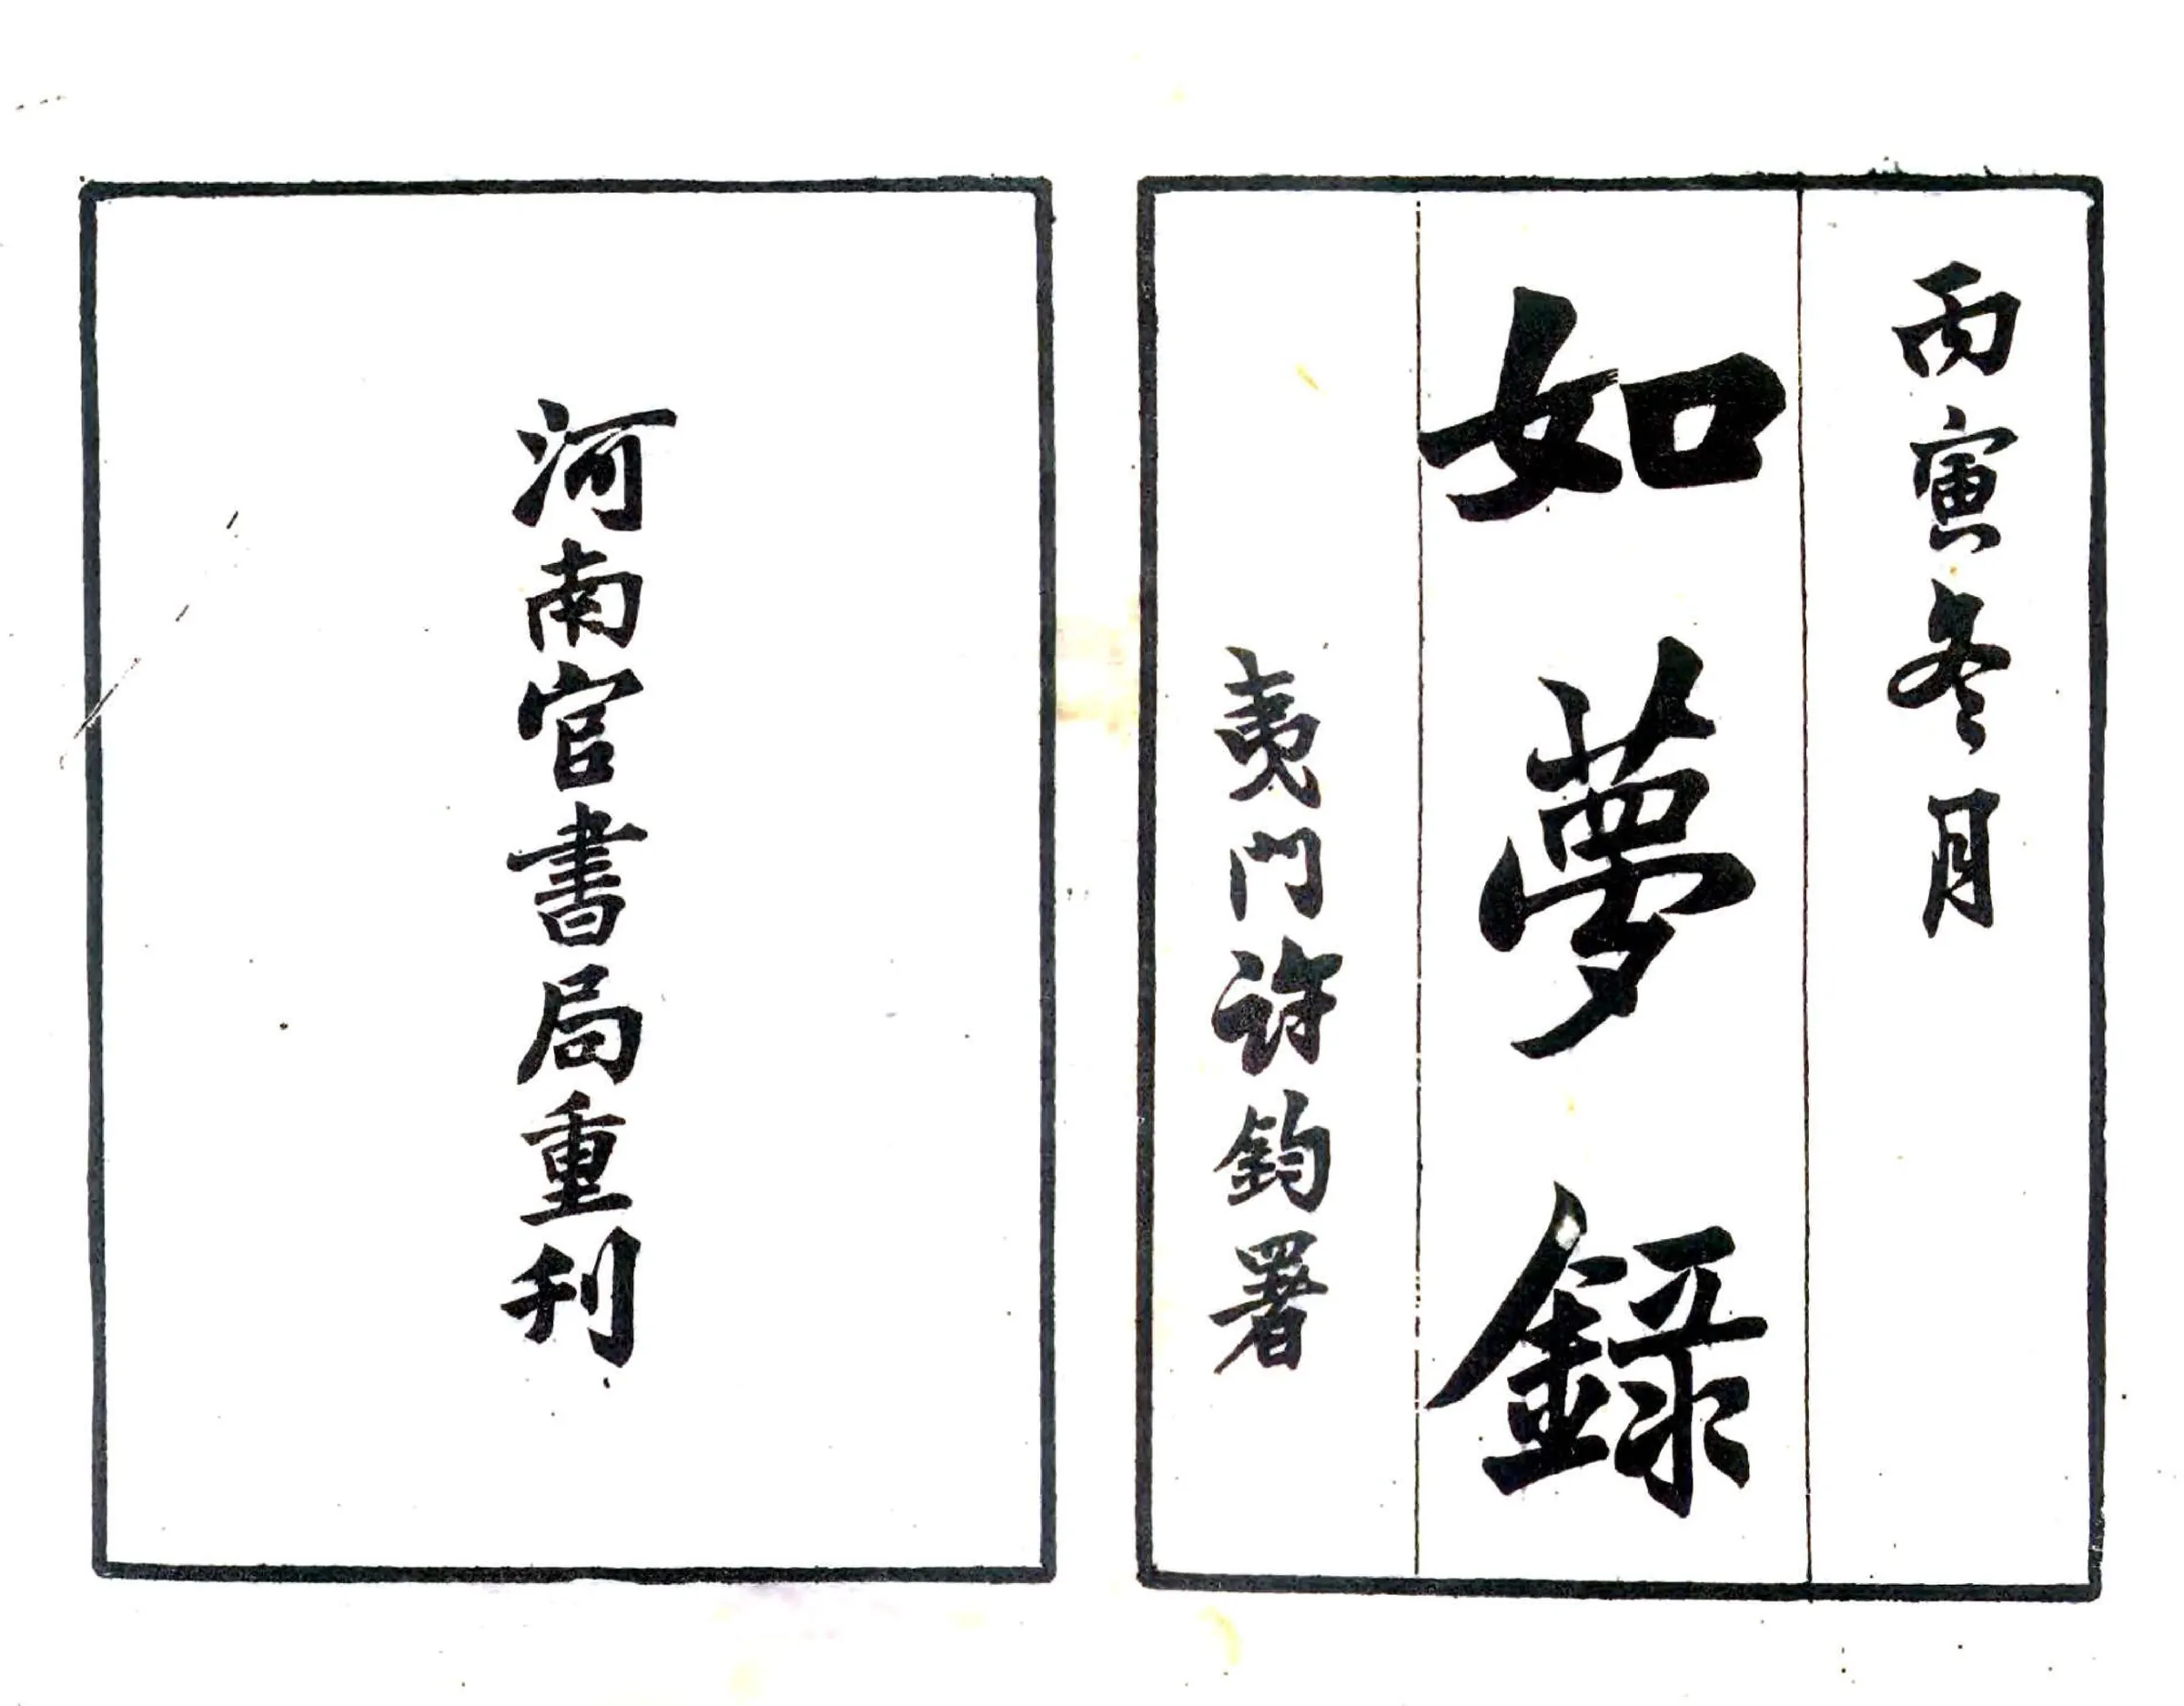 丙寅冬月
如夢録
夷門許鈞署
河南官書局重刊